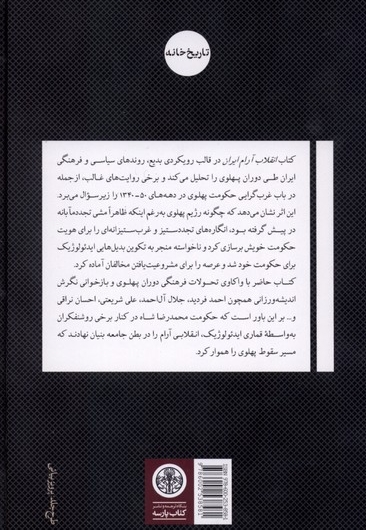 تاریخ خانه
کتاب انقلاب آرام ایران در قالب رویکردی بدیع، روندهای سیاسی و فرهنگی
ایران طی دوران پهلوی را تحلیل می‌کند و برخی روایت‌های غالب، ازجمله
در باب غرب‌گرایی حکومت پهلوی در دهه‌های ۵۰-۱۳۴۰ را زیر سؤال می‌برد.
این اثر نشان می‌دهد که چگونه رژیم پهلوی به‌رغم اینکه ظاهراً مشی تجددمآبانه
در پیش گرفته بود، انگاره‌های تجددستیز و غرب‌ستیزانه‌ای را برای هویت
حکومت خویش برسازی کرد و ناخواسته منجر به تکوین بدیل‌هایی ایدئولوژیک
برای حکومت خود شد و عرصه را برای مشروعیت‌یافتن مخالفان آماده کرد.
کتاب حاضر با واکاوی تحولات فرهنگی دوران پهلوی و بازخوانی نگرش
اندیشه‌ورزانی همچون احمد فردید، جلال آل‌احمد، علی شریعتی، احسان نراقی
و... بر این باور است که حکومت محمدرضا شاه در کنار برخی روشنفکران
به‌واسطهٔ قماری ایدئولوژیک، انقلابی آرام را در بطن جامعه بنیان نهادند که
مسیر سقوط پهلوی را هموار کرد.
طرح جلد: پرویز بیانی
بنگاه ترجمه و نشر
کتاب پارسه